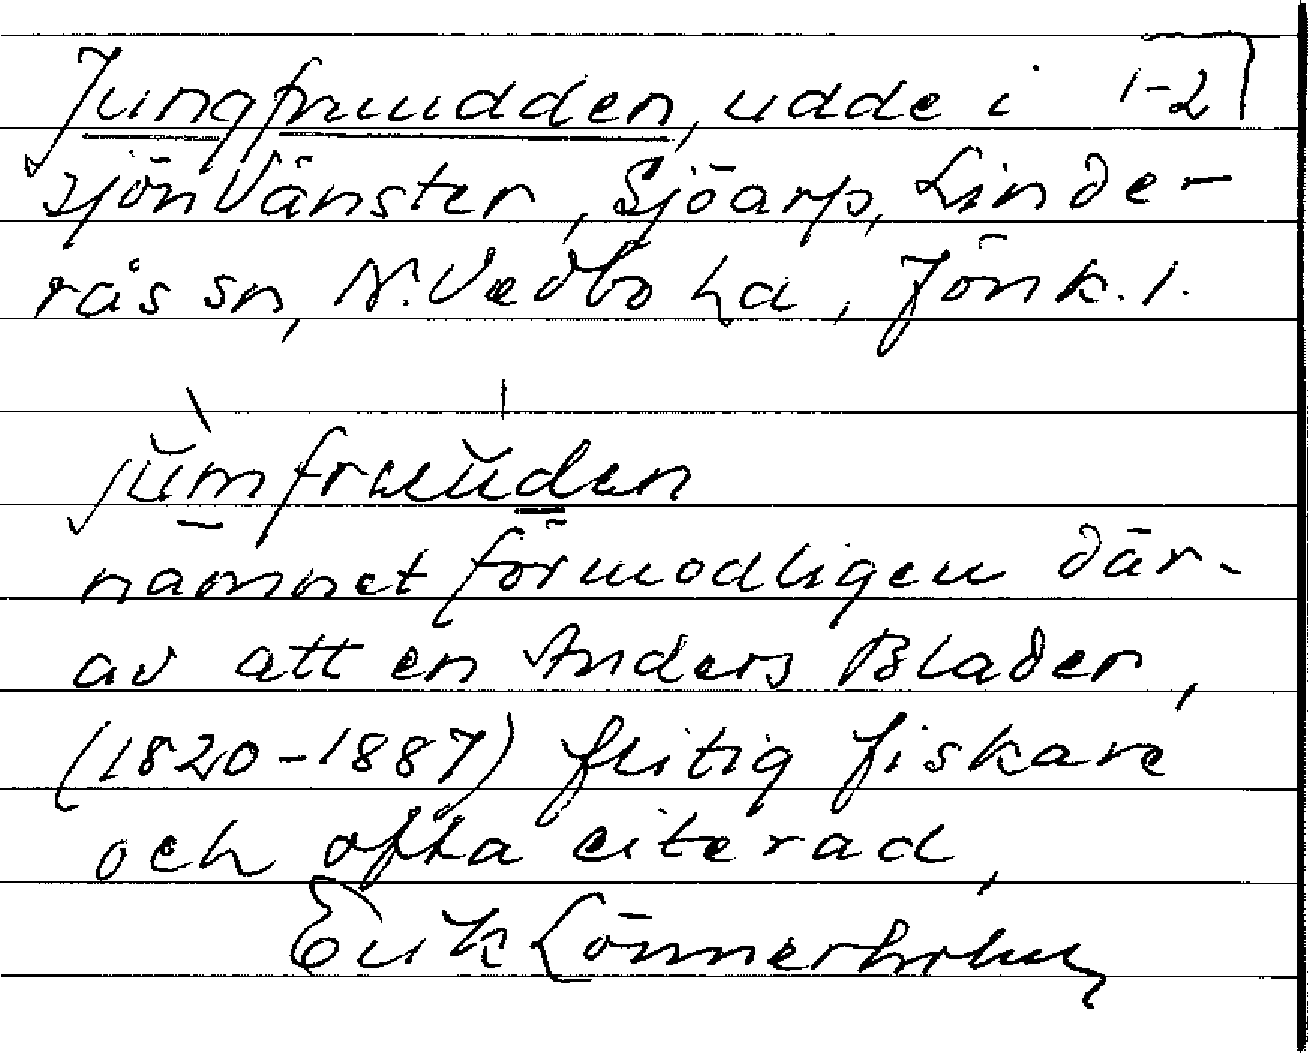 Jungfruudden, udde i 1-2
sjön Vänster, Sjöarp, Linde-
rås sn, N. Vedbo hd, Jönk. l.
jŭmfruŭden
namnet förmodligen där-
av att en Anders Blader,
(1820-1887) flitig fiskare
och ofta citerad,
Erik Lönnerholm